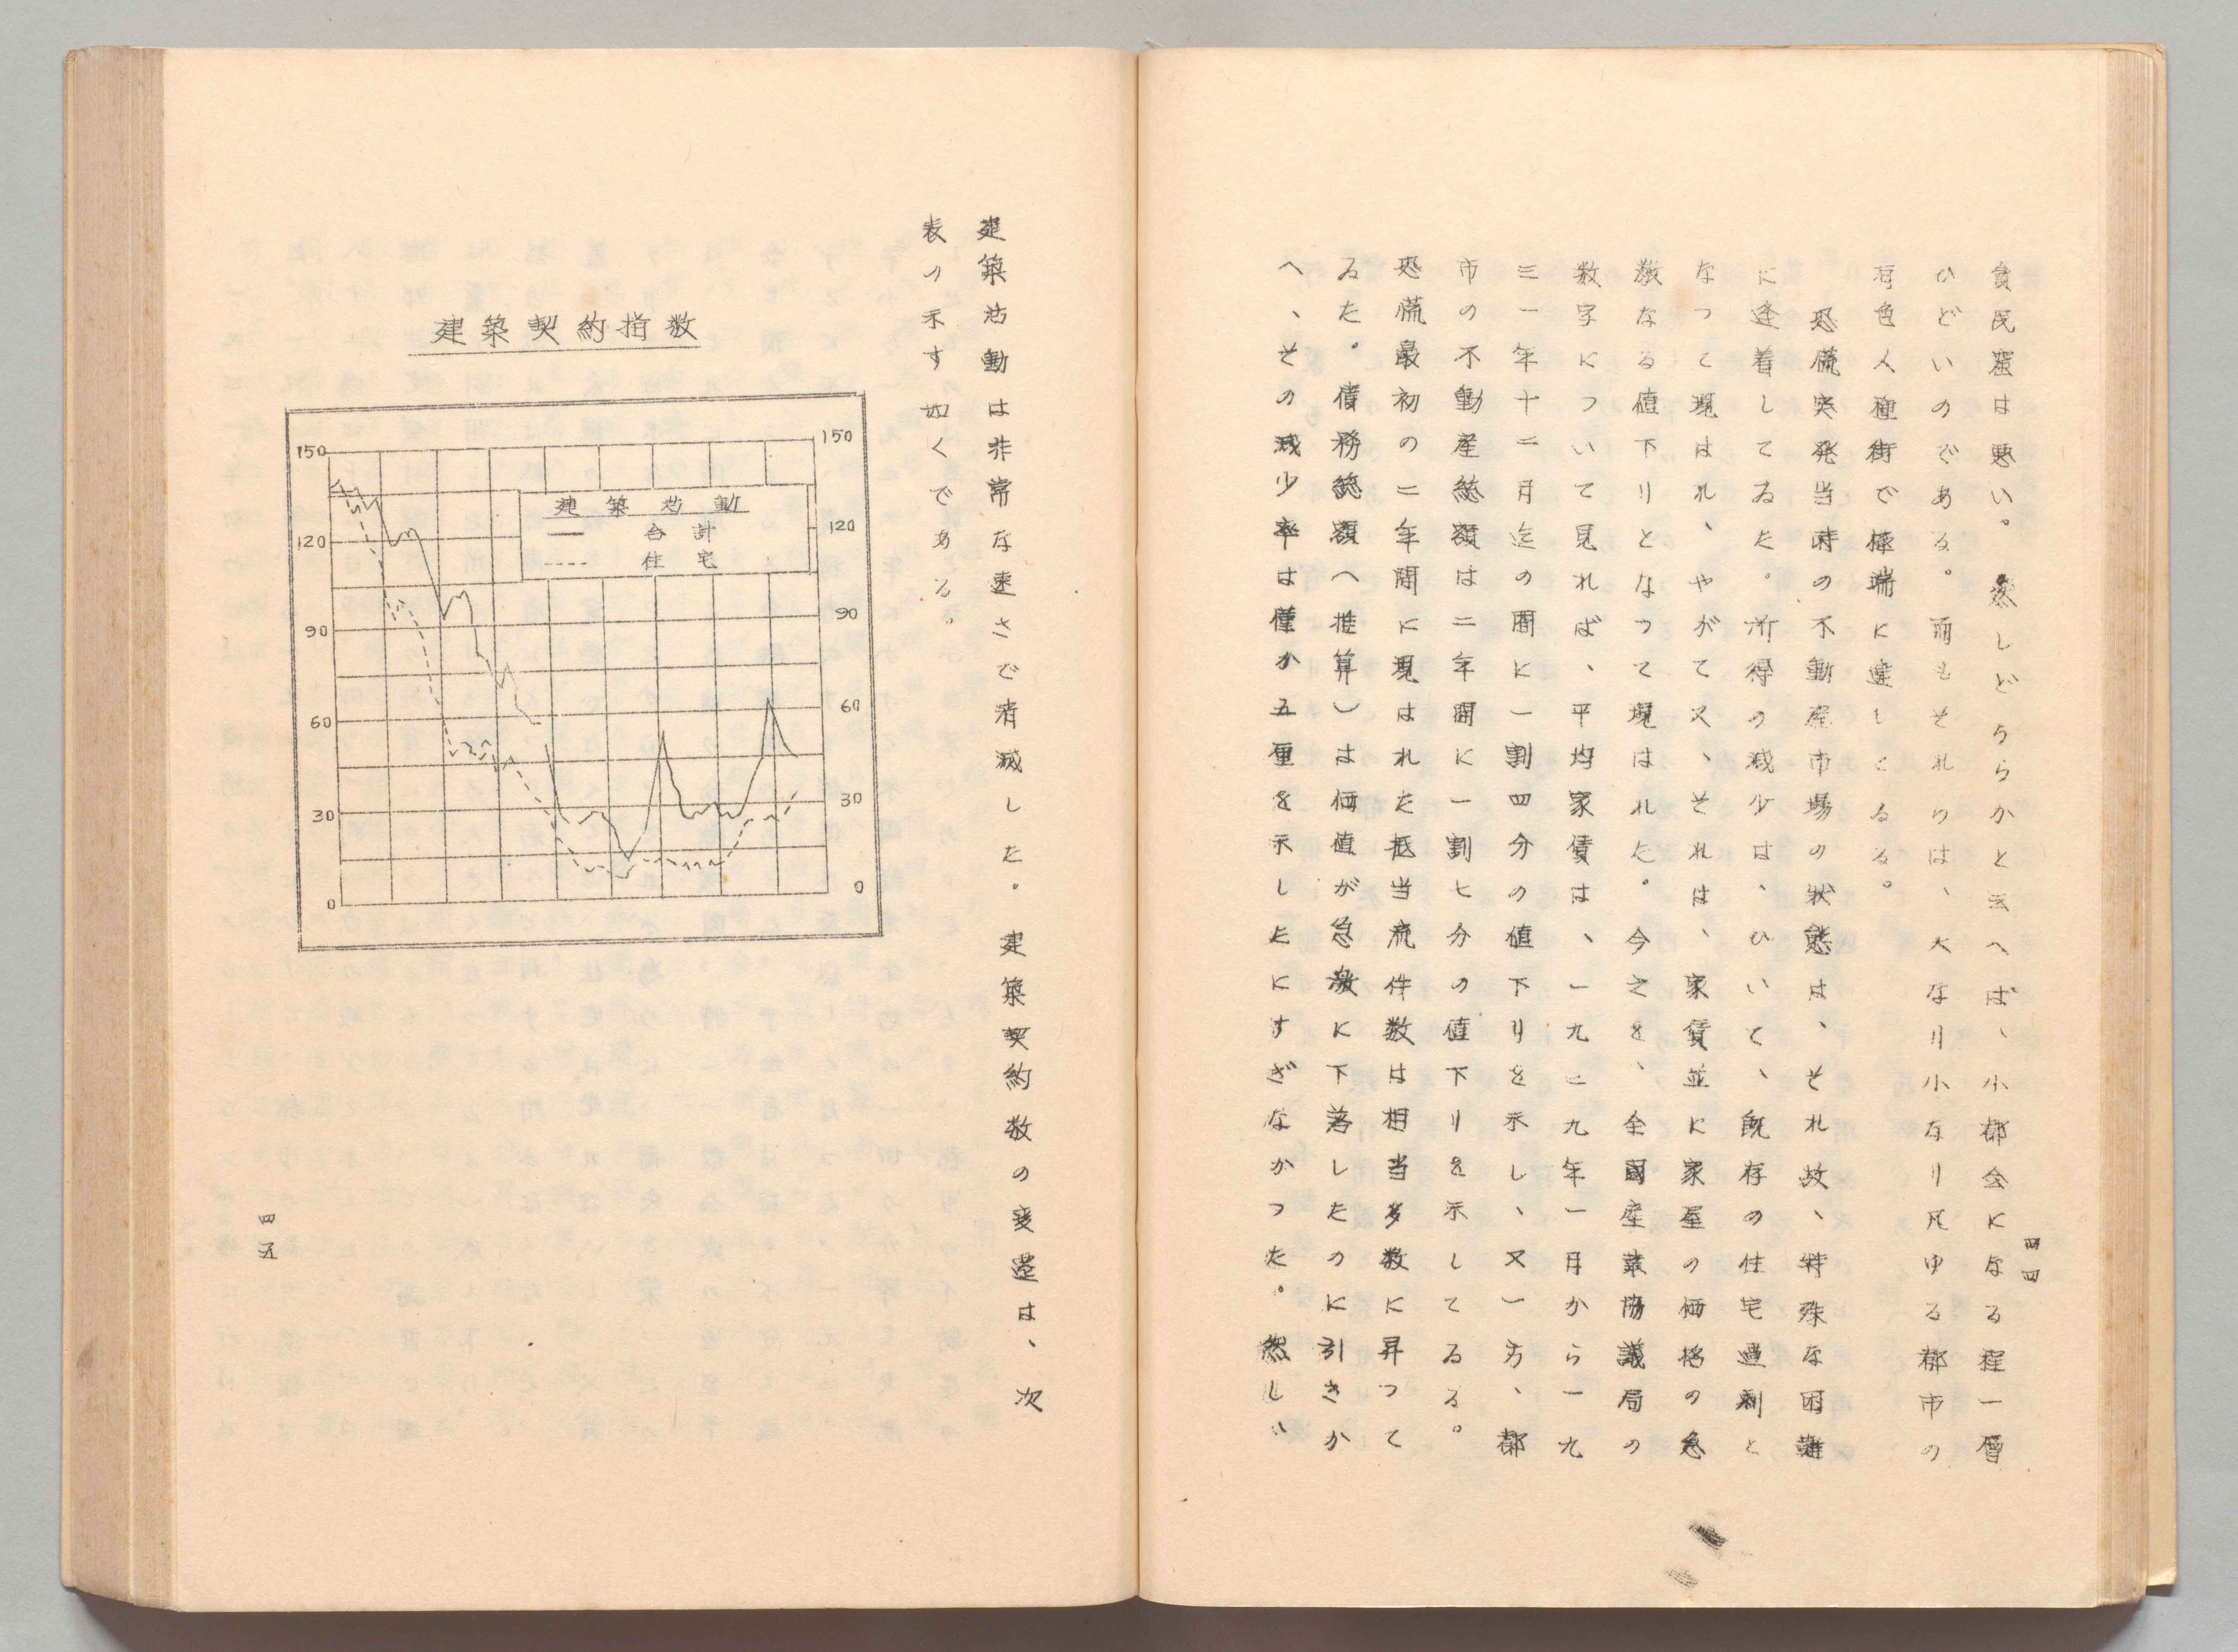 貧民窟は悪い。然しどうらかと云へば、小都会になる程一層
ひどいのである。而もそれらは、大なり小なり凡ゆる都市の
有色人種街で極端に達してゐる。
恐慌突発当時の不動産市場の状態は、それ故、特殊な困難
に逢着してゐた。所得の減少は、ひいて、既存の住宅過剰と
なつて現はれ、やがて又、それは、家賃並に家屋の価格の急
激なる値下りとなつて現はれた。今之を、全国産業協議局の
数字について見れば、平均家賃は、一九二九年一月から一九
三一年十二月迄の間に一割四分の値下りを示し、又一方、都
市の不動産総額は二年間に一割七分の値下りを示してゐる。
恐慌最初の二年間に現はれた抵当流件数は相当多数に昇つて
ゐた。債務総額（推算）は価値が急激に下落したのに引きか
へ、その減少率は僅か五厘を示したにすぎなかつた。然し、
四四
建築活動は非常な速さで消滅した。建築契約数の変遷は、次
表の示す如くである。
建築契約指数
150
120
90
60
30
0
150
120
90
60
30
0
建築活動
合計
住宅
四五